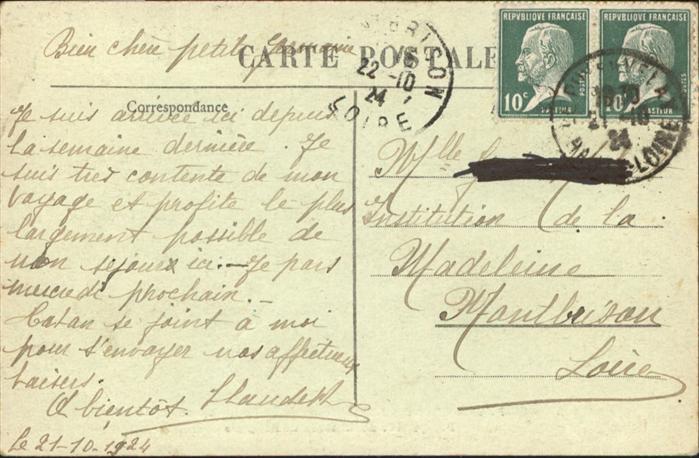 Bien chère petite Germaine
CARTE POSTALE
Correspondance
Je suis arrivée ici depuis
la semaine dernière. Je
suis très contente de mon
voyage et profite le plus
largement possible de
mon séjour ici. - Je pars
mercredi prochain. -
se joint à moi
pour t'envoyer nos affectueux
baisers.
A bientôt.
Le 21-10-1924
REPVBLIQUE FRANÇAISE
10c
PASTEUR
REPVBLIQUE FRANÇAISE
10c
PASTEUR
22-10
24
LOIRE
24
HAUTE-LOIRE
Mlle
Institution de la
Madeleine
Montbrison
Loire